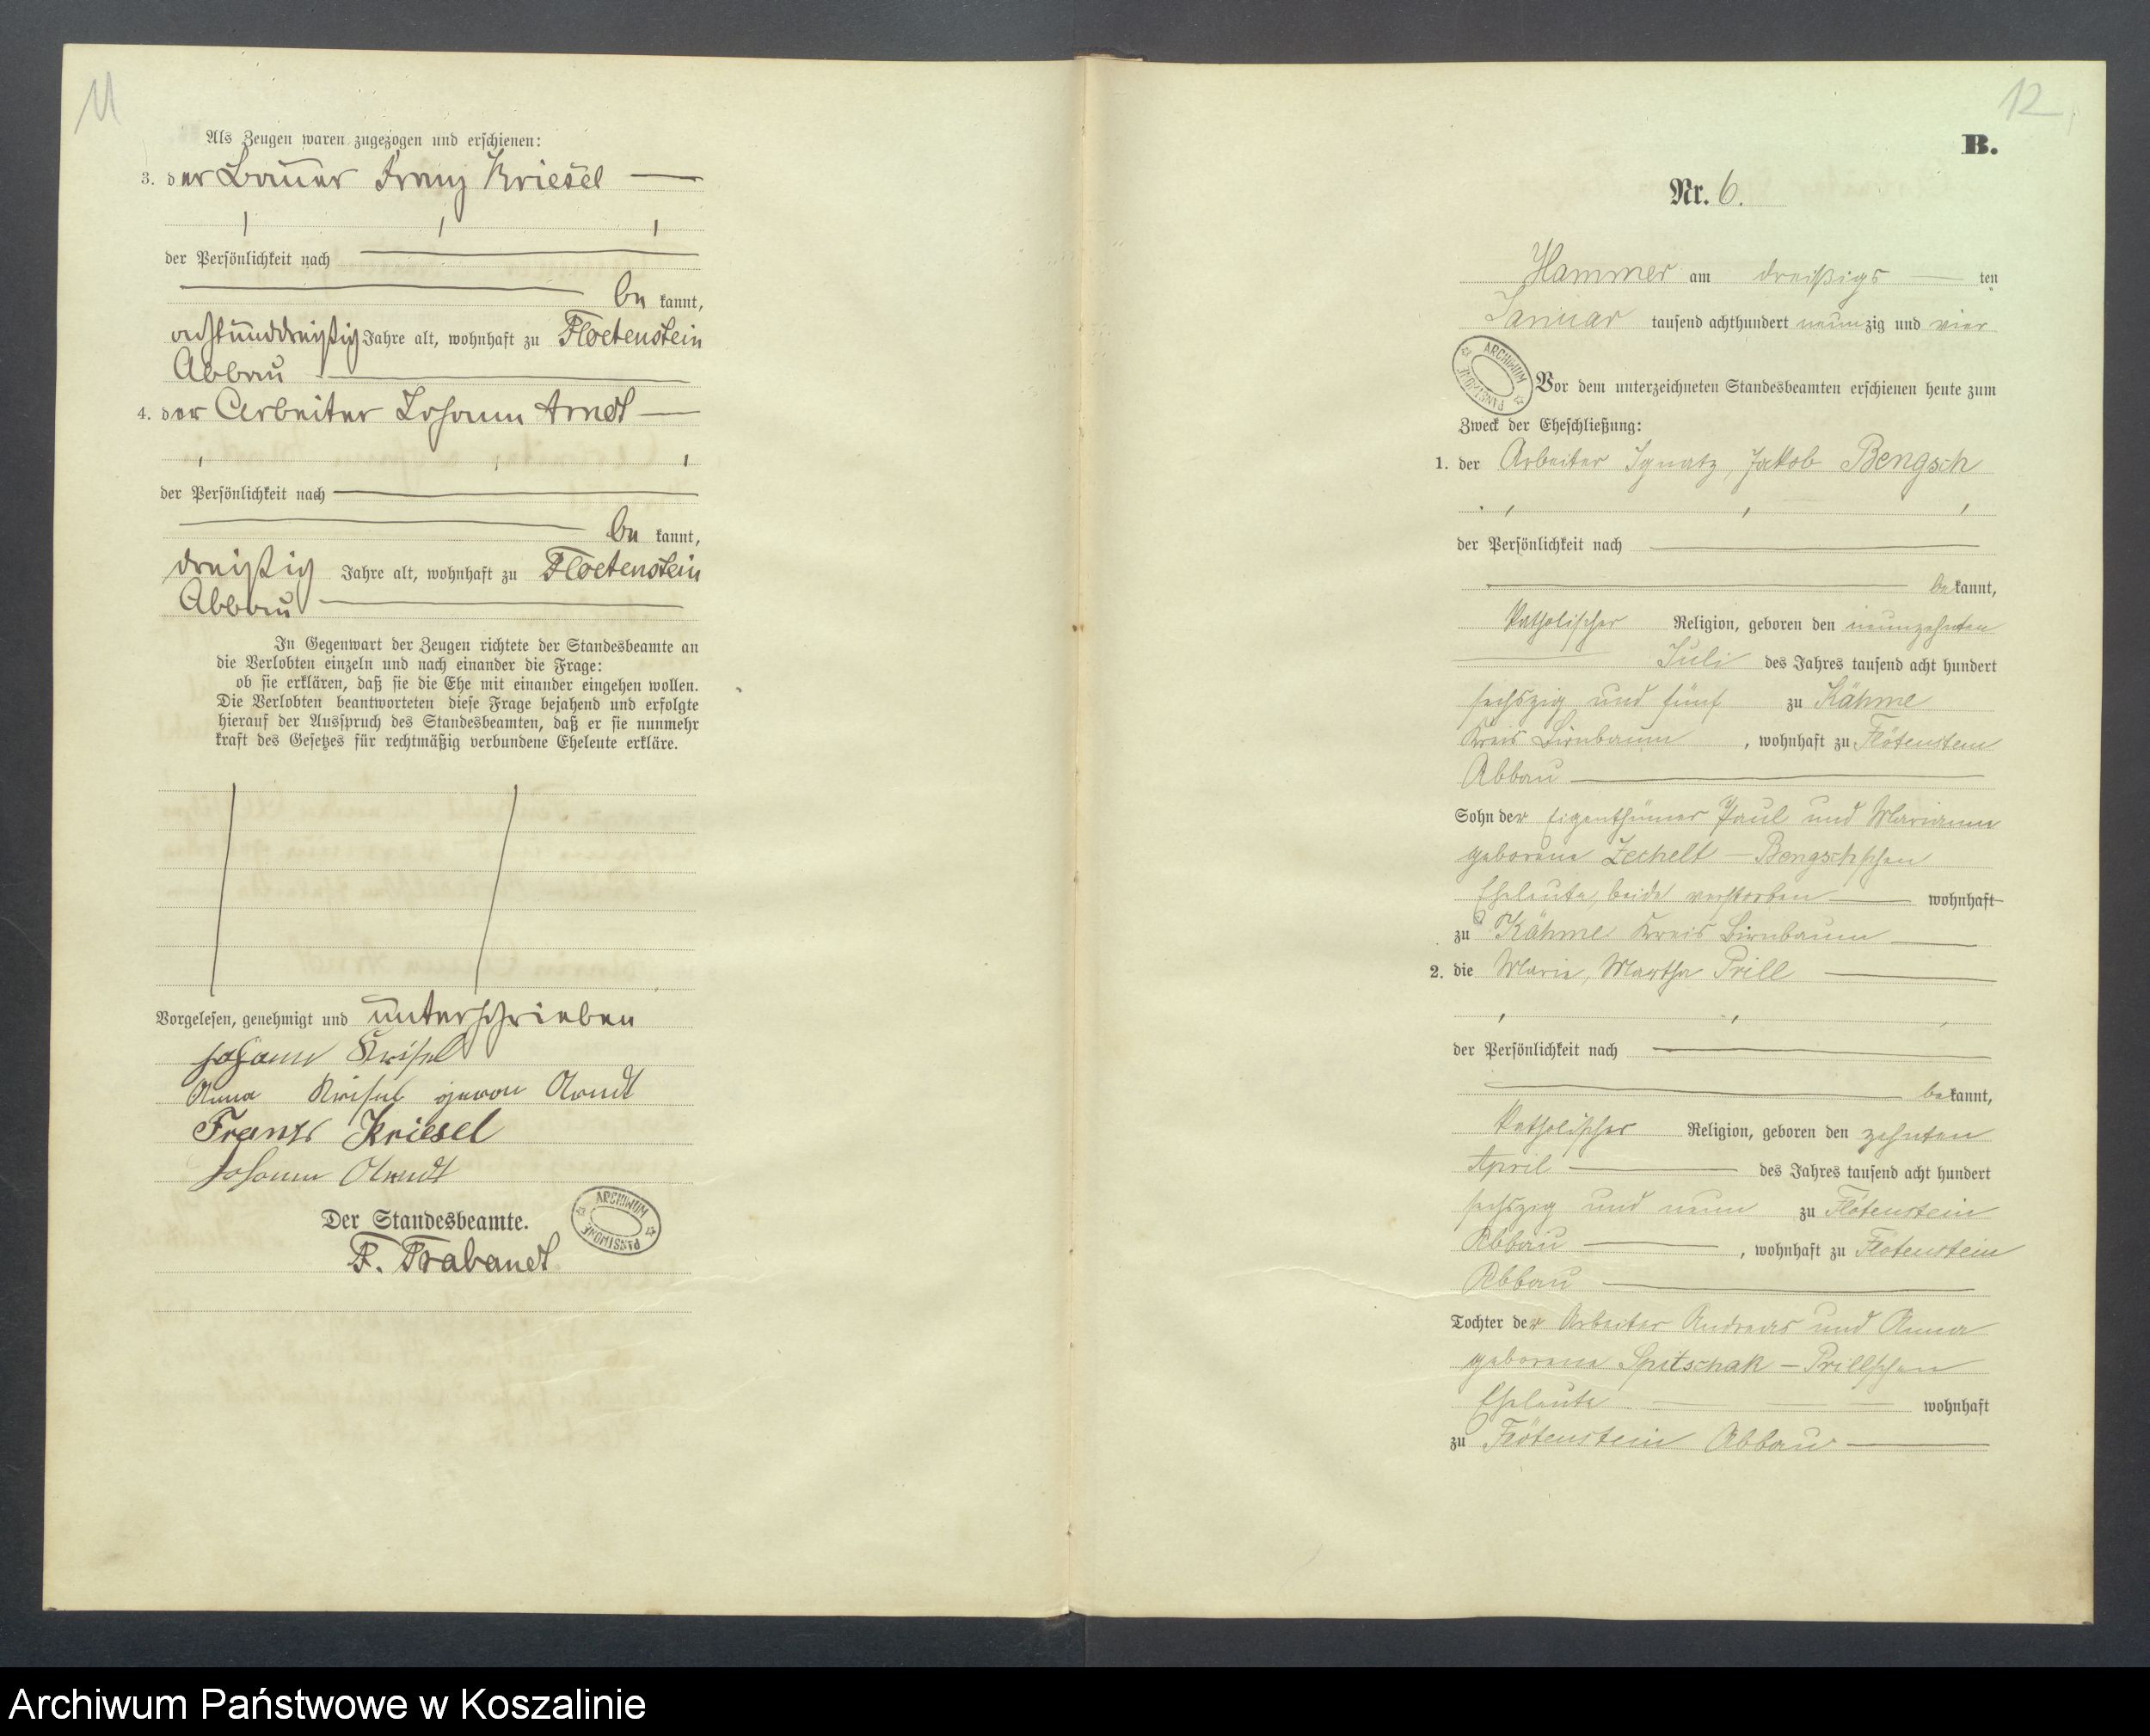 11
Als Zeugen waren zugezogen und erschienen:
3. der Bauer Franz Kriesel
der Persönlichkeit nach
be kannt,
achtunddreißig Jahre alt, wohnhaft zu Floetenstein
Abbau
4. der Arbeiter Johann Arndt
der Persönlichkeit nach
be kannt,
dreißig Jahre alt, wohnhaft zu Floetenstein
Abbau
In Gegenwart der Zeugen richtete der Standesbeamte an
die Verlobten einzeln und nach einander die Frage:
ob sie erklären, daß sie die Ehe mit einander eingehen wollen.
Die Verlobten beantworteten diese Frage bejahend und erfolgte
hierauf der Ausspruch des Standesbeamten, daß er sie nunmehr
kraft des Gesetzes für rechtmäßig verbundene Eheleute erkläre.
Vorgelesen, genehmigt und unterschrieben
Johann Krisel
Anna Krisel Arndt
Franz Kriesel
Johann Arndt
ARCHIWUM PAŃSTWOWE
Der Standesbeamte.
F. Trabandt
12
B.
Nr. 6.
Hammer am dreißigs ten
Januar tausend achthundert neunzig und vier
ARCHIWUM PAŃSTWOWE
Vor dem unterzeichneten Standesbeamten erschienen heute zum
Zweck der Eheschließung:
1. der Arbeiter Ignatz, Jakob Bengsch
der Persönlichkeit nach
bekannt,
katholischer Religion, geboren den neunzehnten
Juli des Jahres tausend acht hundert
sechszig und fünf zu Kähme
Kreis Birnbaum, wohnhaft zu Flötenstein
Abbau
Sohn der Eigenthümer Paul und Marianna
geborene Zechelt - Bengsch'schen
Eheleute, beide verstorben wohnhaft
zu Kähme Kreis Birnbaum
2. die Marie, Martha Prill
der Persönlichkeit nach
bekannt,
katholischer Religion, geboren den zehnten
April des Jahres tausend acht hundert
sechszig und neun zu Flötenstein
Abbau, wohnhaft zu Flötenstein
Abbau
Tochter der Arbeiter Andreas und Anna
geborene Spitschak - Prill'schen
Eheleute wohnhaft
zu Flötenstein Abbau
Archiwum Państwowe w Koszalinie